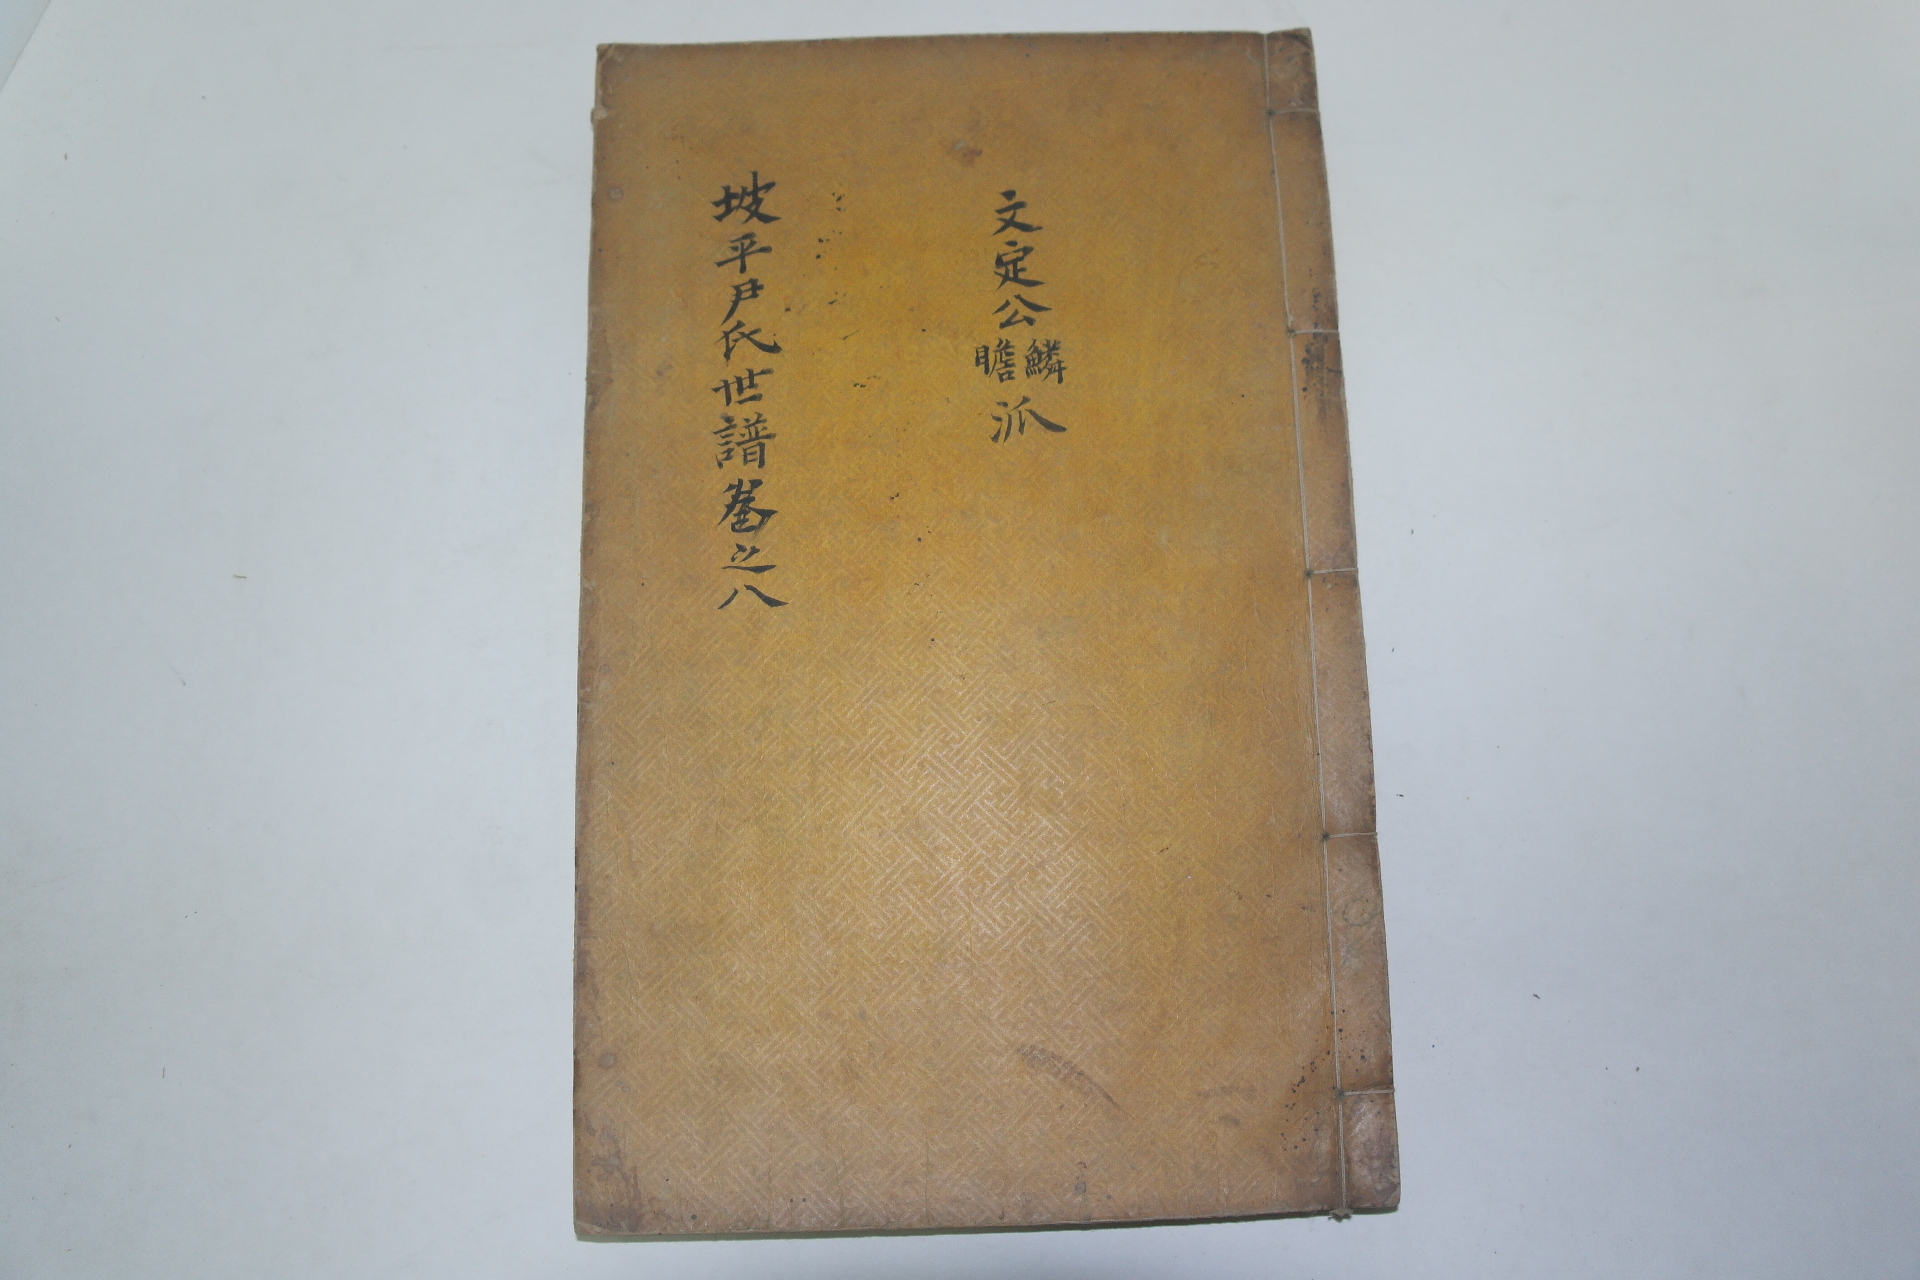 文定公鱗瞻派
坡平尹氏世譜卷之八